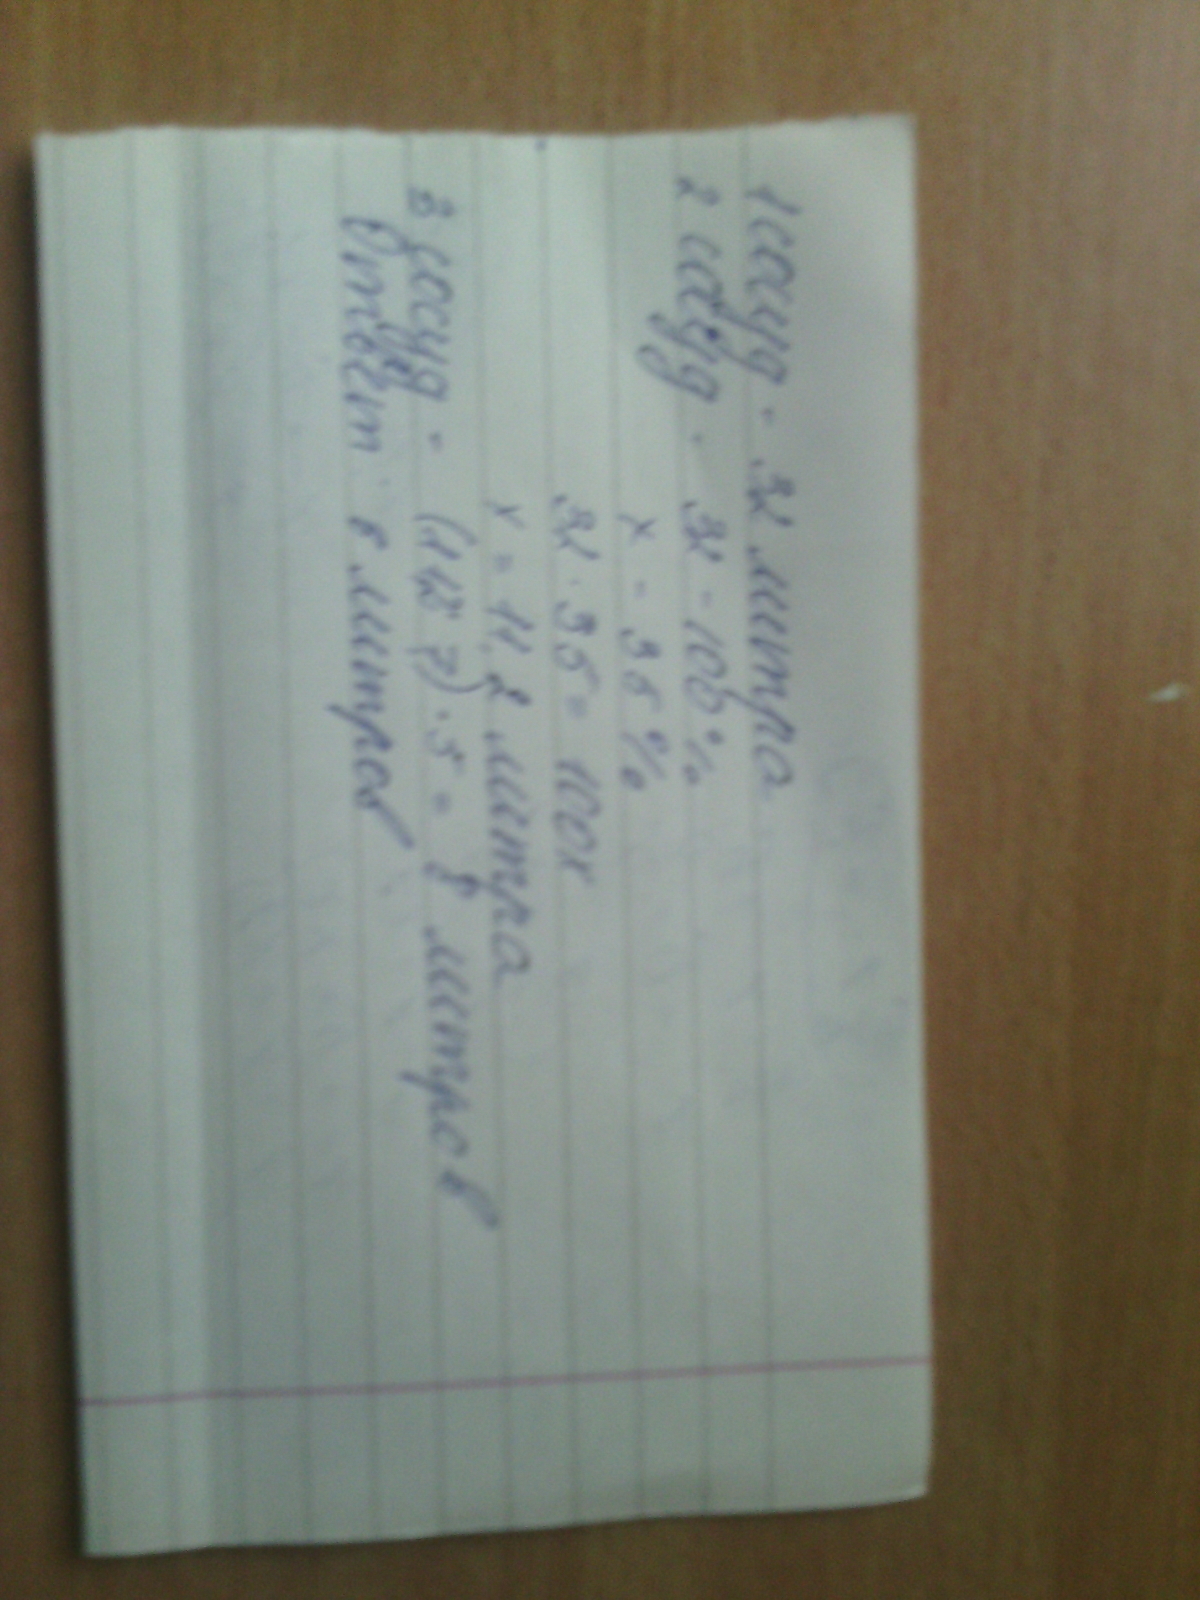 1 сосуд - 32 литра
2 сосуд - 32 - 100%
x - 35%
32 · 35 = 100x
x = 11,2 литра
3 сосуд - (11,2 : 7) · 5 = 8 литров
Ответ: 8 литров